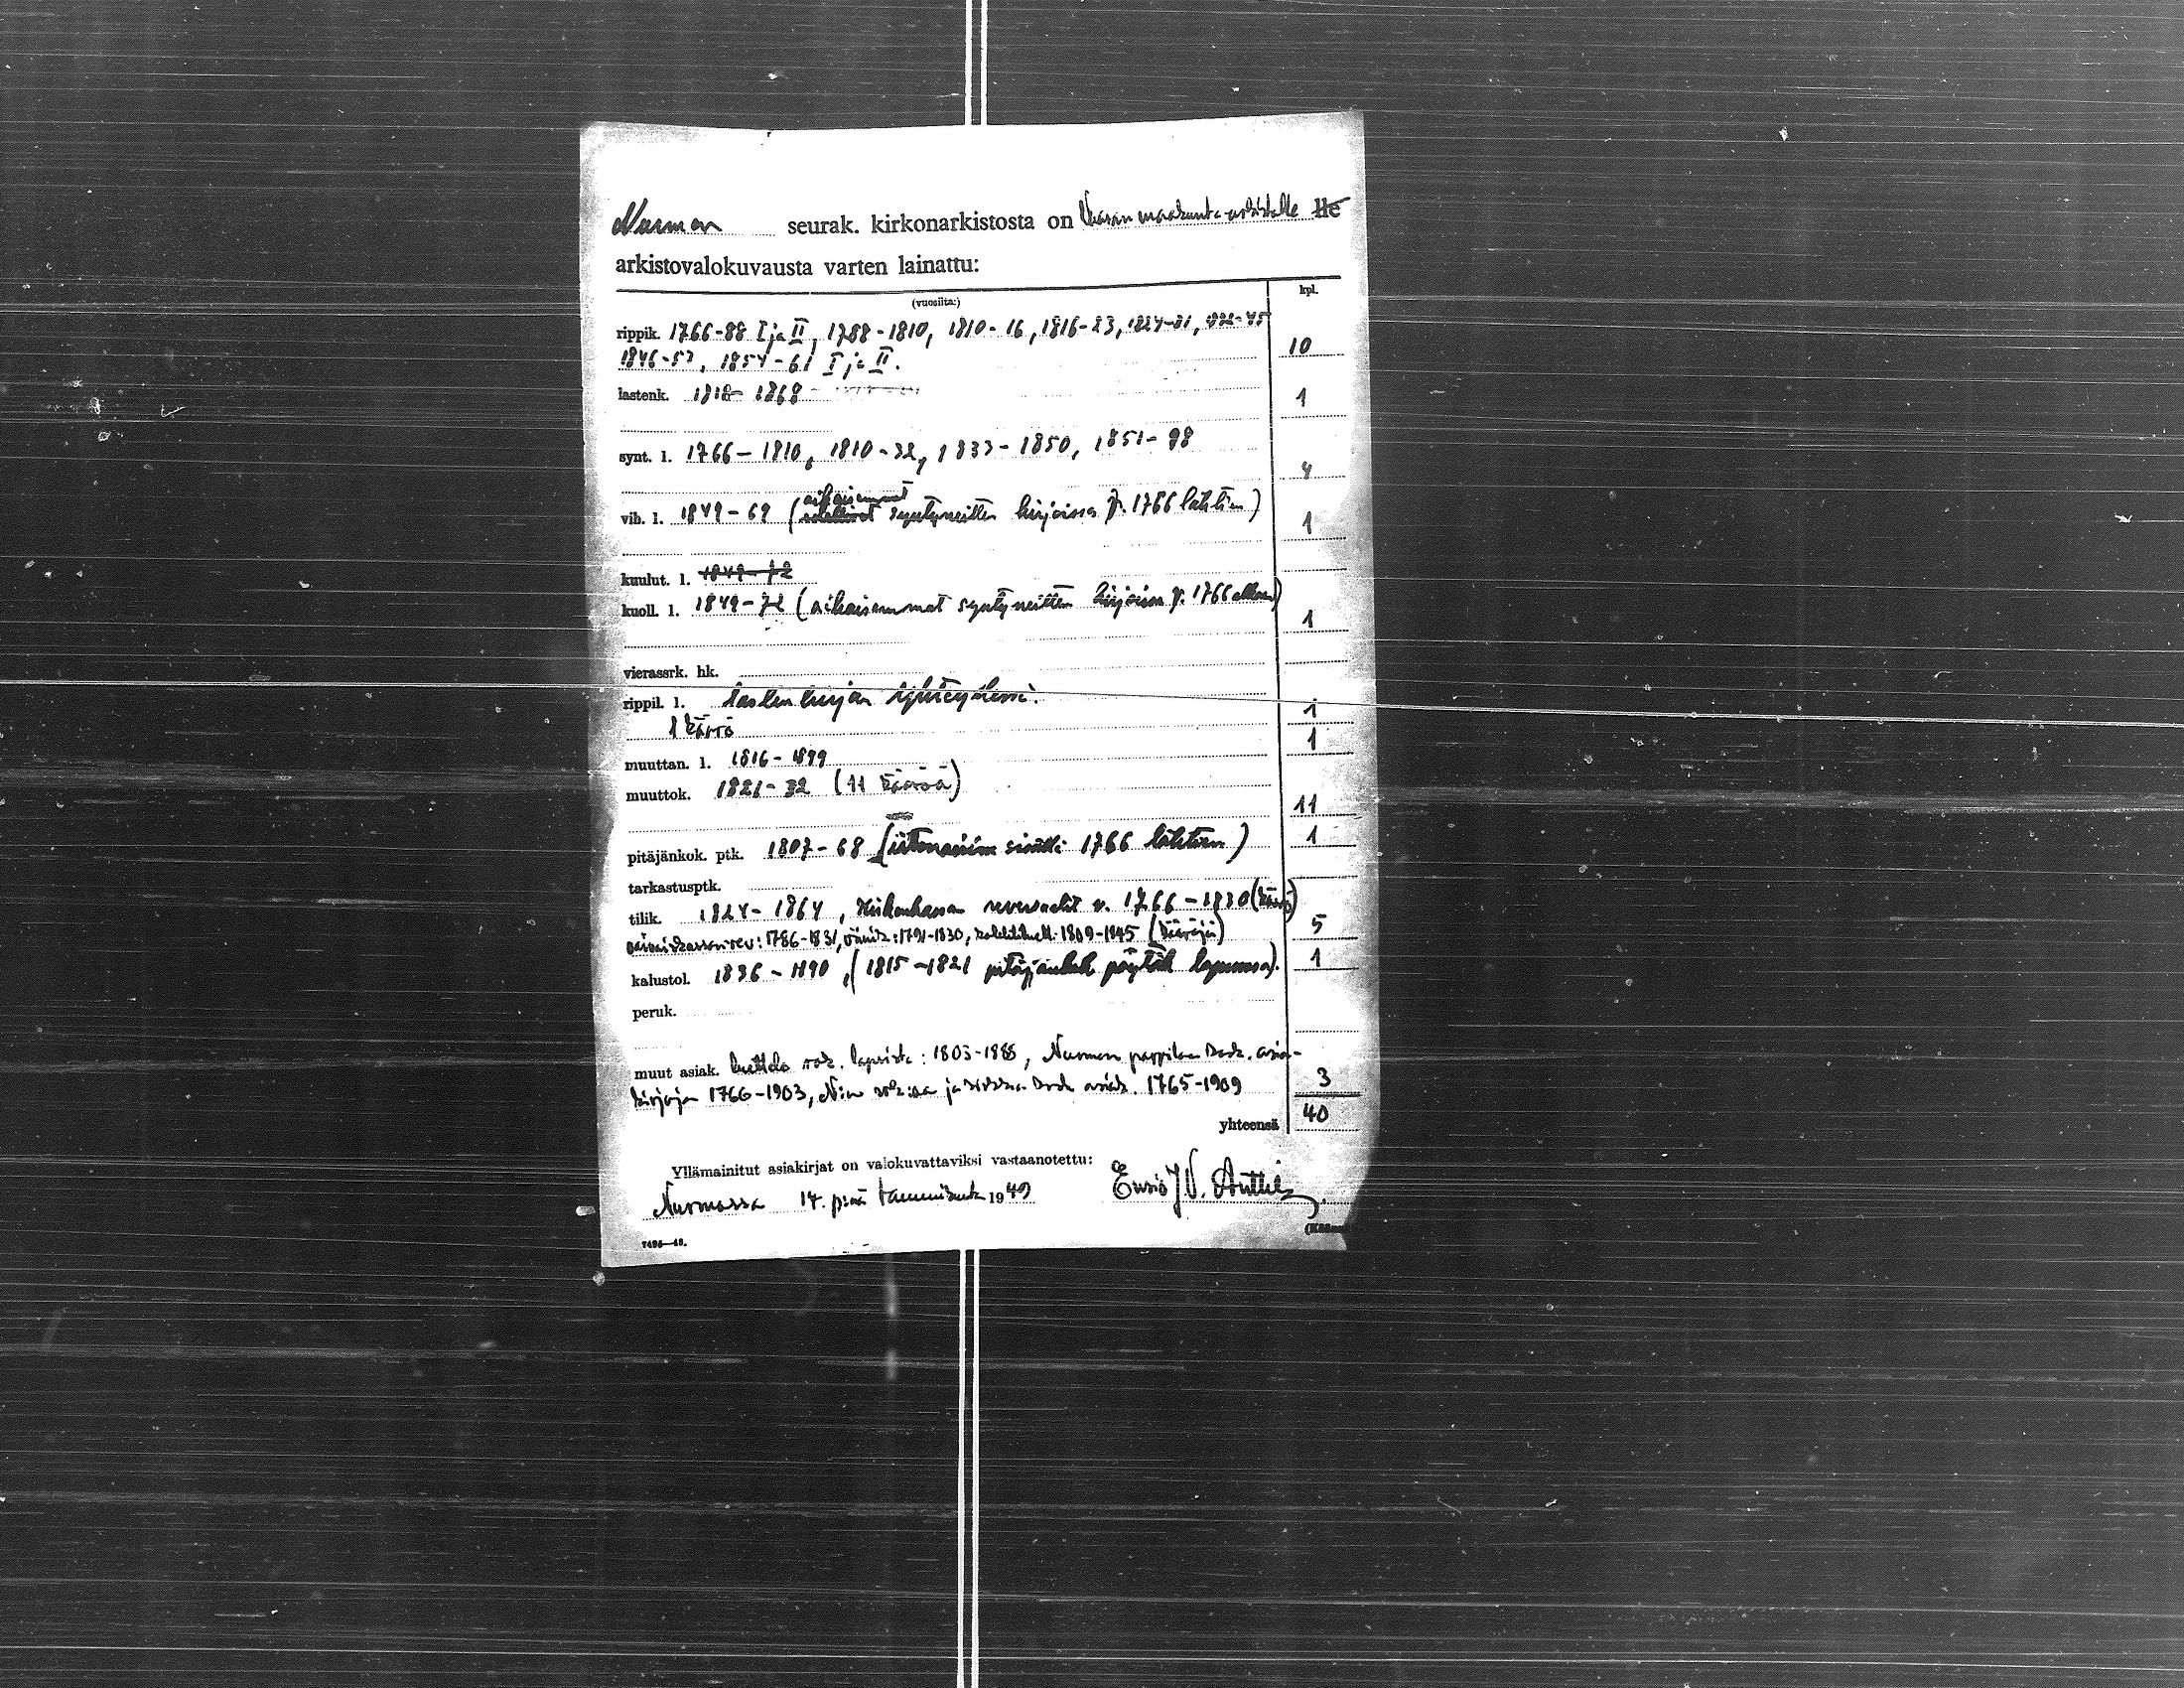 Nurmon seurak. kirkonarkistosta on Vaasan maakunta-arkistolle lle
arkistovalokuvausta varten lainattu:
(vuosilta:) kpl.
rippik. 1766-88 I ja II, 1788-1810, 1810-16, 1816-23, 1824-31, 1832-45
1846-53, 1854-61 I ja II. 10
lastenk. 1818- 1868 1
synt. l. 1766-1810, 1810-32, 1833-1850, 1851-98 4
vih. l. 1849-69 (aikaisemmat syntyneitten kirjoissa v. 1766 lähtien) 1
kuulut. l. 1849-72
kuoll. l. 1849-72 (aikaisemmat syntyneitten kirjoissa v. 1766 alkaen) 1
vierassrk. hk.
rippil. l. lastenkirjan yhteydessä. 1
1 käärö 1
muuttan. l. 1816-1899
muuttok. 1821-32 (11 kääröä) 11
pitäjänkok. ptk. 1807-68 (irtonaisina sivuilla 1766 lähtien) 1
tarkastusptk.
tilik. 1824-1864, Kirkonkassan reversaalit v. 1766-1830 (käärö)
vaivaiskassan rev: 1786-1831, 1791-1830, 1809-1845 (kääröjä) 5
kalustol. 1836-1890, (1815-1821 pitäjänkok. pöytäk. lopussa). 1
peruk.
muut asiak. luettelo rok. lapsista: 1803-1888, Nurmon pappilan rak. asia-
kirjoja 1766-1903, N:n ja kirkon rak. asiak. 1765-1909 3
yhteensä 40
Yllämainitut asiakirjat on valokuvattaviksi vastaanotettu:
Nurmossa 14. p:nä tammikuuta 1949 Ensio J.V. Anttila
7496—48. (Käännä